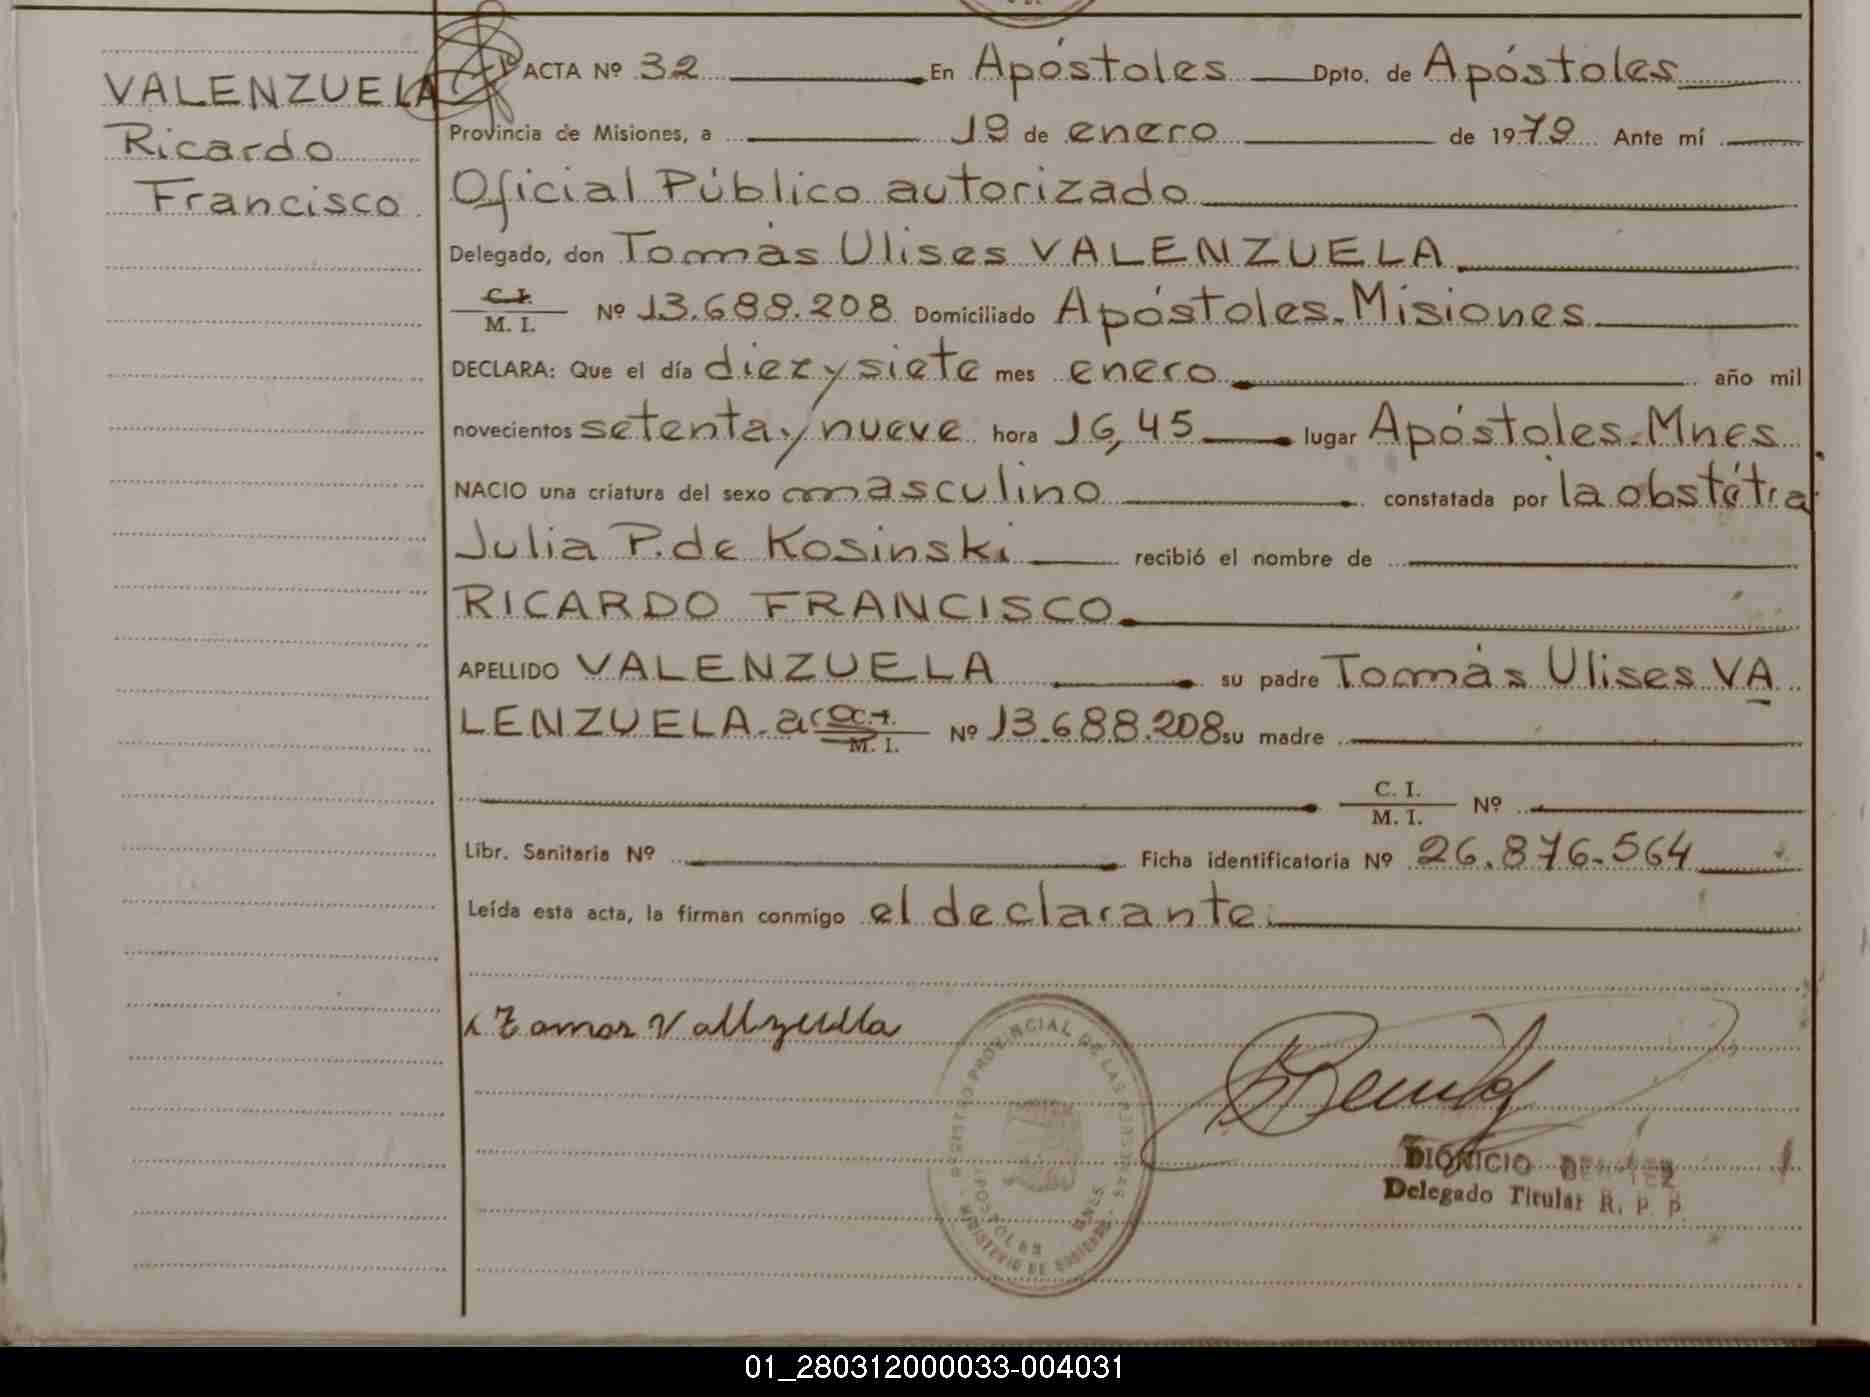 VALENZUELA
Ricardo
Francisco
ACTA Nº 32 En Apóstoles Dpto. de Apóstoles
Provincia de Misiones, a 19 de enero de 1979 Ante mí
Oficial Público autorizado
Delegado, don Tomás Ulises VALENZUELA
C.I.
M. I. Nº 13.688.208 Domiciliado Apóstoles-Misiones
DECLARA: Que el día diez y siete mes enero año mil
novecientos setenta y nueve hora 16,45 lugar Apóstoles-Mnes.
NACIO una criatura del sexo masculino constatada por la obstétra
Julia P. de Kosinski recibió el nombre de
RICARDO FRANCISCO
APELLIDO VALENZUELA su padre Tomás Ulises VA
LENZUELA. arg. C.I. M. I. Nº 13.688.208 su madre
C. I.
M. I. Nº
Libr. Sanitaria Nº Ficha identificatoria Nº 26.876.564
Leída esta acta, la firman conmigo el declarante.
REGISTRO PROVINCIAL DE LAS PERSONAS
APOSTOLES MNES.
MINISTERIO DE GOBIERNO
DIONICIO
Delegado Titular R. P. P.
01_280312000033-004031